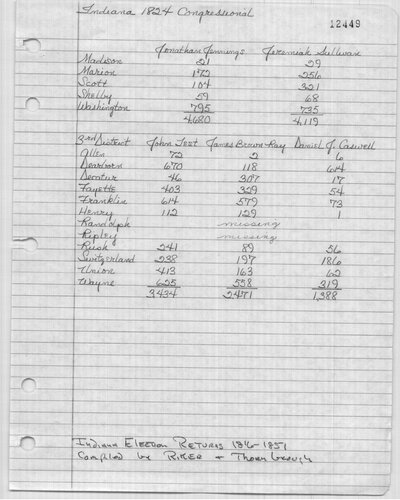 Indiana 1824 Congressional
12449
Jonathan Jennings Jeremiah Sullivan
Madison 21 29
Marion 172 256
Scott 104 321
Shelby 59 68
Washington 795 735
4,680 4,119
3rd District John Test James Brown Ray Daniel J. Caswell
Allen 72 2 6
Dearborn 670 118 614
Decatur 46 307 17
Fayette 403 329 54
Franklin 614 579 73
Henry 112 129 1
Randolph missing
Ripley missing
Rush 241 89 56
Switzerland 238 197 186
Union 413 163 62
Wayne 625 558 319
3,434 2,471 1,388
Indiana Election Returns 1816-1851
Compiled by Riker & Thornbrough